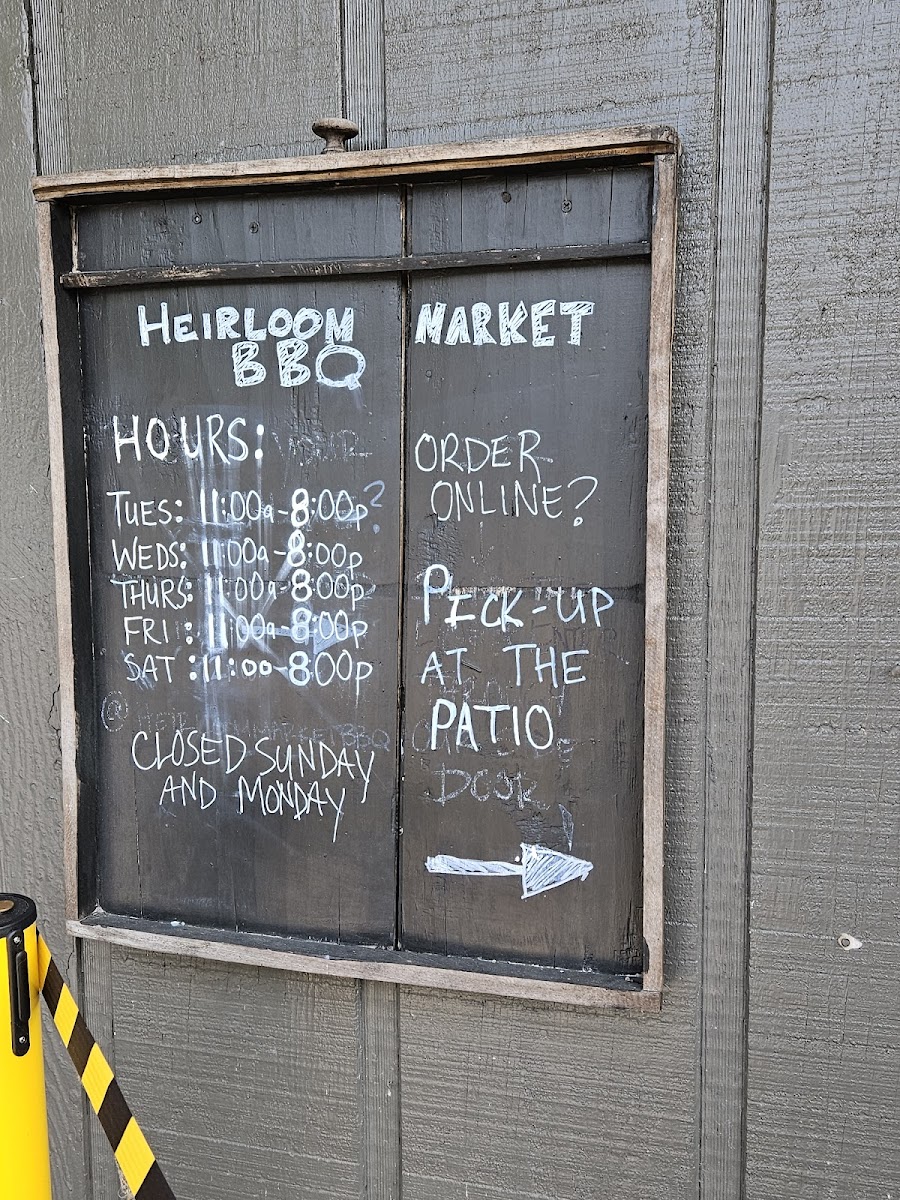 HEIRLOOM MARKET
BBQ
HOURS:
TUES: 11:00a-8:00p?
WEDS: 11:00a-8:00p
THURS: 11:00a-8:00p
FRI : 11:00a-8:00p
SAT : 11:00-8:00p
CLOSED SUNDAY
AND MONDAY
ORDER
ONLINE?
PICK-UP
AT THE
PATIO
DOOR